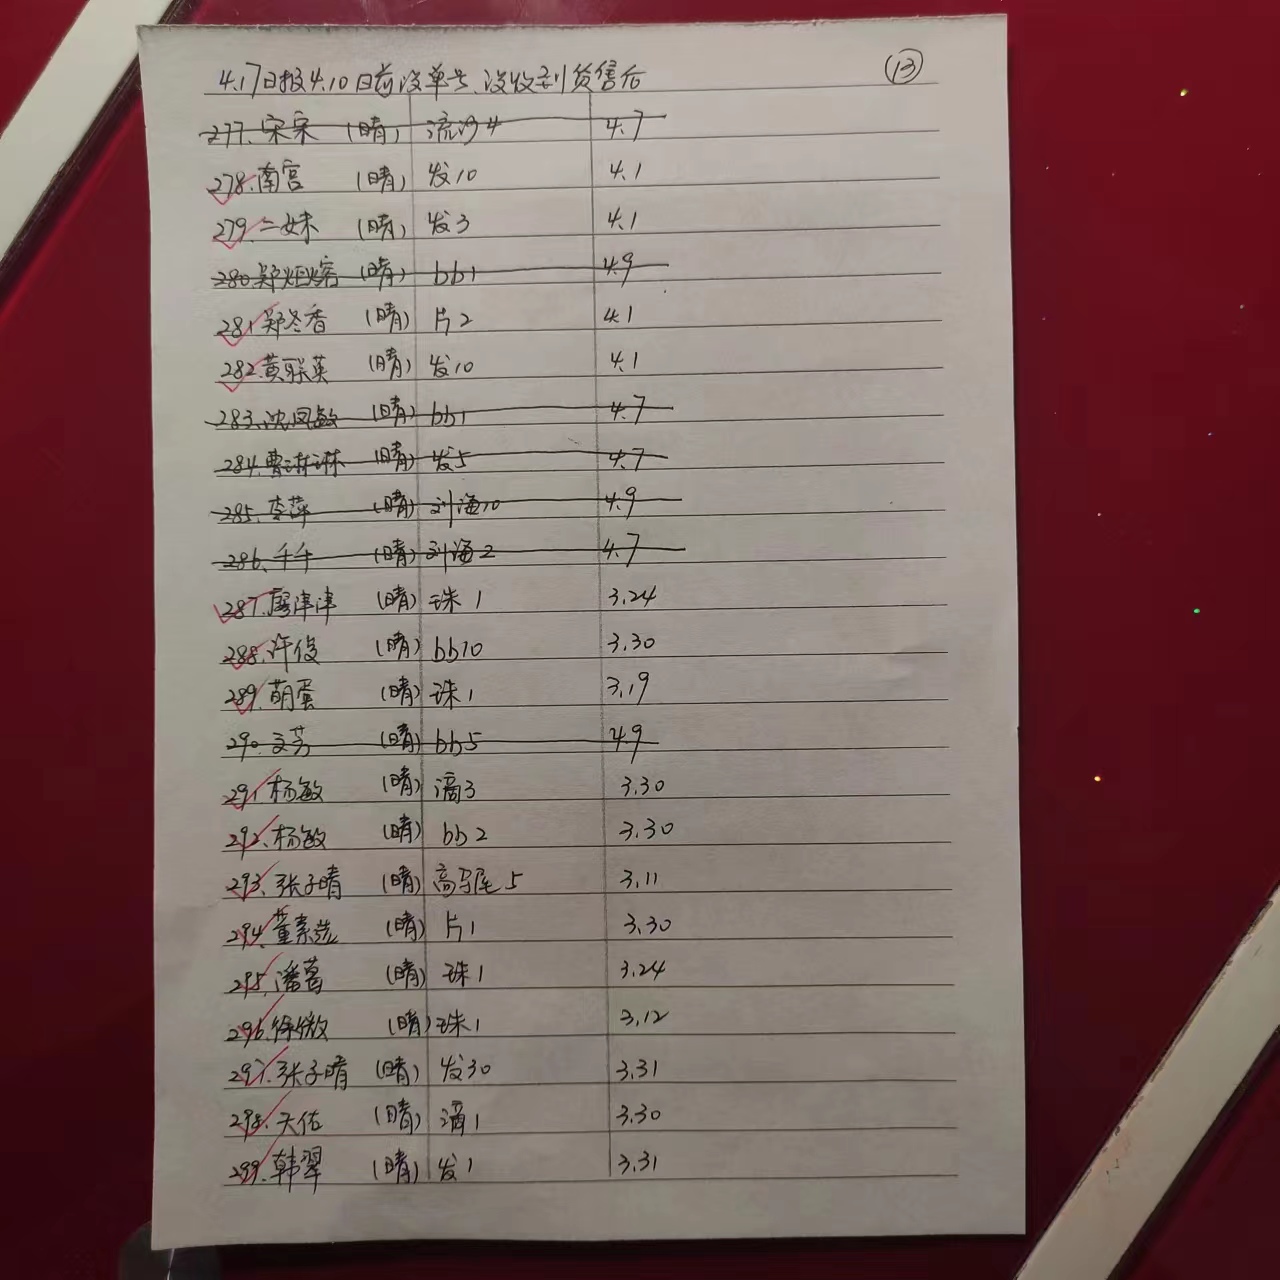 4.17日报4.10日前没单号、没收到货售后
⑬
277、宋宋 (晴) 流沙4 4.7
278.南宫 (晴) 发10 4.1
279.二妹 (晴) 发3 4.1
280.郑 (晴) bb1 4.9
281.郑冬香 (晴) 片2 4.1
282.黄联英 (晴) 发10 4.1
283.沈凤敏 (晴) bb1 4.7
284.曹琳琳 (晴) 发5 4.7
285、李萍 (晴) 刘海10 4.9
286、千千 (晴) 刘海2 4.7
287.廖津津 (晴) 珠1 3.24
288.许俊 (晴) bb10 3.30
289.萌蛋 (晴) 珠1 3.19
290.文芳 (晴) bb5 4.9
291.杨敏 (晴) 滴3 3.30
292.杨敏 (晴) bb2 3.30
293.张子晴 (晴) 高马尾5 3.11
294.董素 (晴) 片1 3.30
295.潘 (晴) 珠1 3.24
296.徐微 (晴) 珠1 3.12
297.张子晴 (晴) 发30 3.31
298.天佑 (晴) 滴1 3.30
299.韩翠 (晴) 发1 3.31